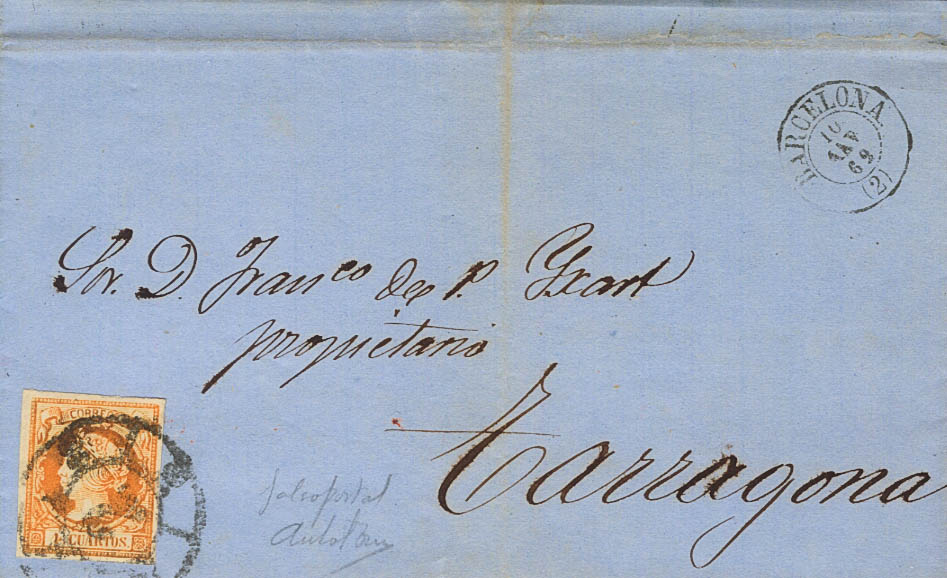 BARCELONA
10
69
(2)
Sor. D. Franco de P. Yxart
propietario
Tarragona
CORREOS
4 CUARTOS.
falso postal